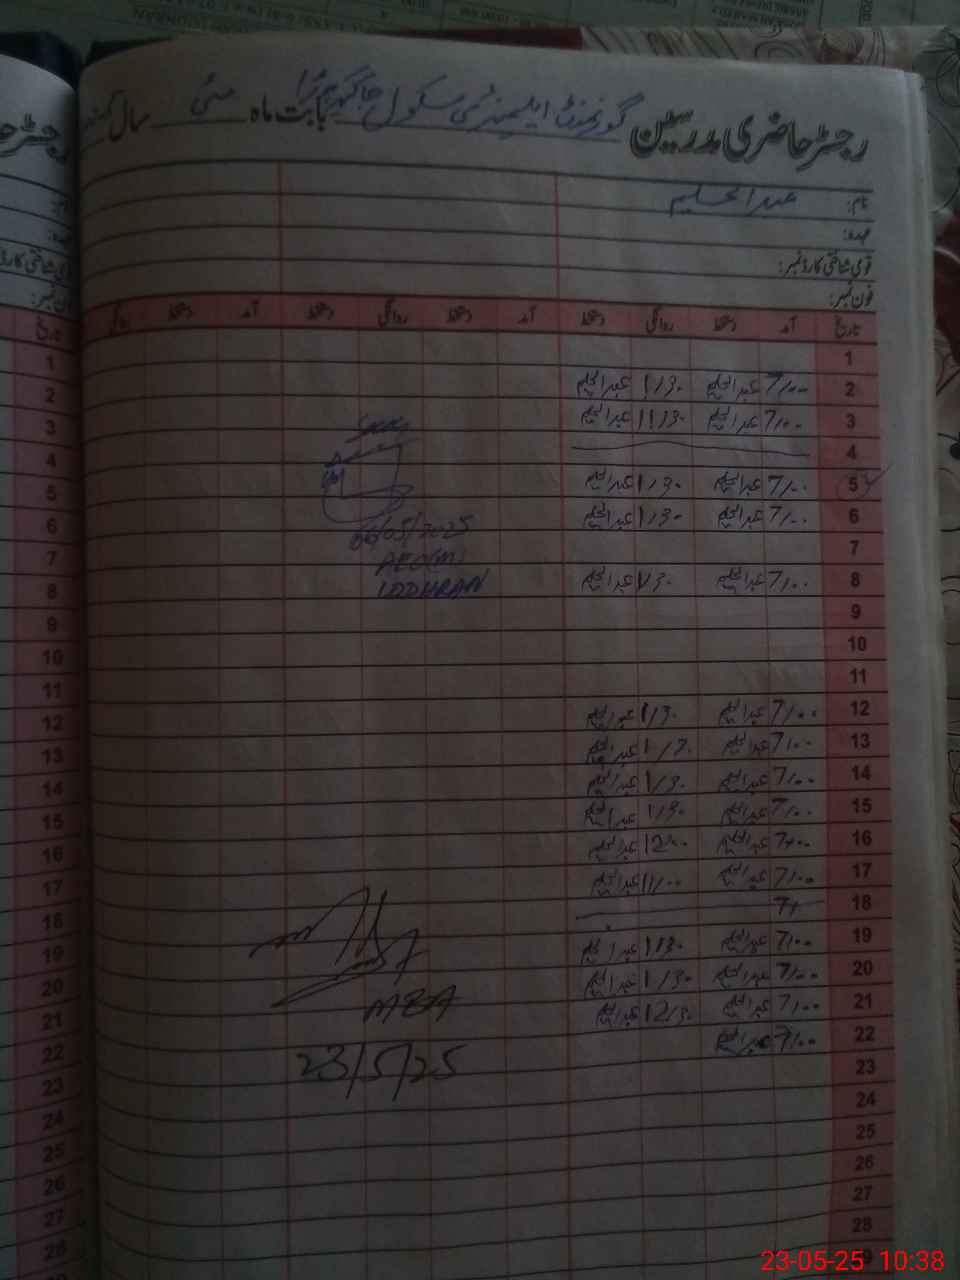 رجسٹر حاضری مدرسین گورنمنٹ ایلیمنٹری سکول بابت ماہ مئی سال
نام: عبدالحلیم
عہدہ:
قومی شناختی کارڈ نمبر:
فون نمبر:
تاریخ آمد دستخط روانگی دستخط آمد دستخط روانگی دستخط آمد دستخط روانگی
1
2 7/00 عبدالحلیم 1/30 عبدالحلیم
3 7/00 عبدالحلیم 11/30 عبدالحلیم
4
5 7/00 عبدالحلیم 1/30 عبدالحلیم
6 7/00 عبدالحلیم 1/30 عبدالحلیم
7
8 7/00 عبدالحلیم 1/30 عبدالحلیم
9
10
11
12 7/00 عبدالحلیم 1/30 عبدالحلیم
13 7/00 عبدالحلیم 1/30 عبدالحلیم
14 7/00 عبدالحلیم 1/30 عبدالحلیم
15 7/00 عبدالحلیم 1/30 عبدالحلیم
16 7/00 عبدالحلیم 12/00 عبدالحلیم
17 7/00 عبدالحلیم 11/00 عبدالحلیم
18 7/
19 7/00 عبدالحلیم 1/30 عبدالحلیم
20 7/00 عبدالحلیم 1/30 عبدالحلیم
21 7/00 عبدالحلیم 12/30 عبدالحلیم
22 7/00 عبدالحلیم
23
24
25
26
27
28
06/05/2025
AEO(M)
LODHRAN
MEA
23/5/25
تاریخ
1
2
3
4
5
6
7
8
9
10
11
12
13
14
15
16
17
18
19
20
21
22
23
24
25
26
27
28
23-05-25 10:38